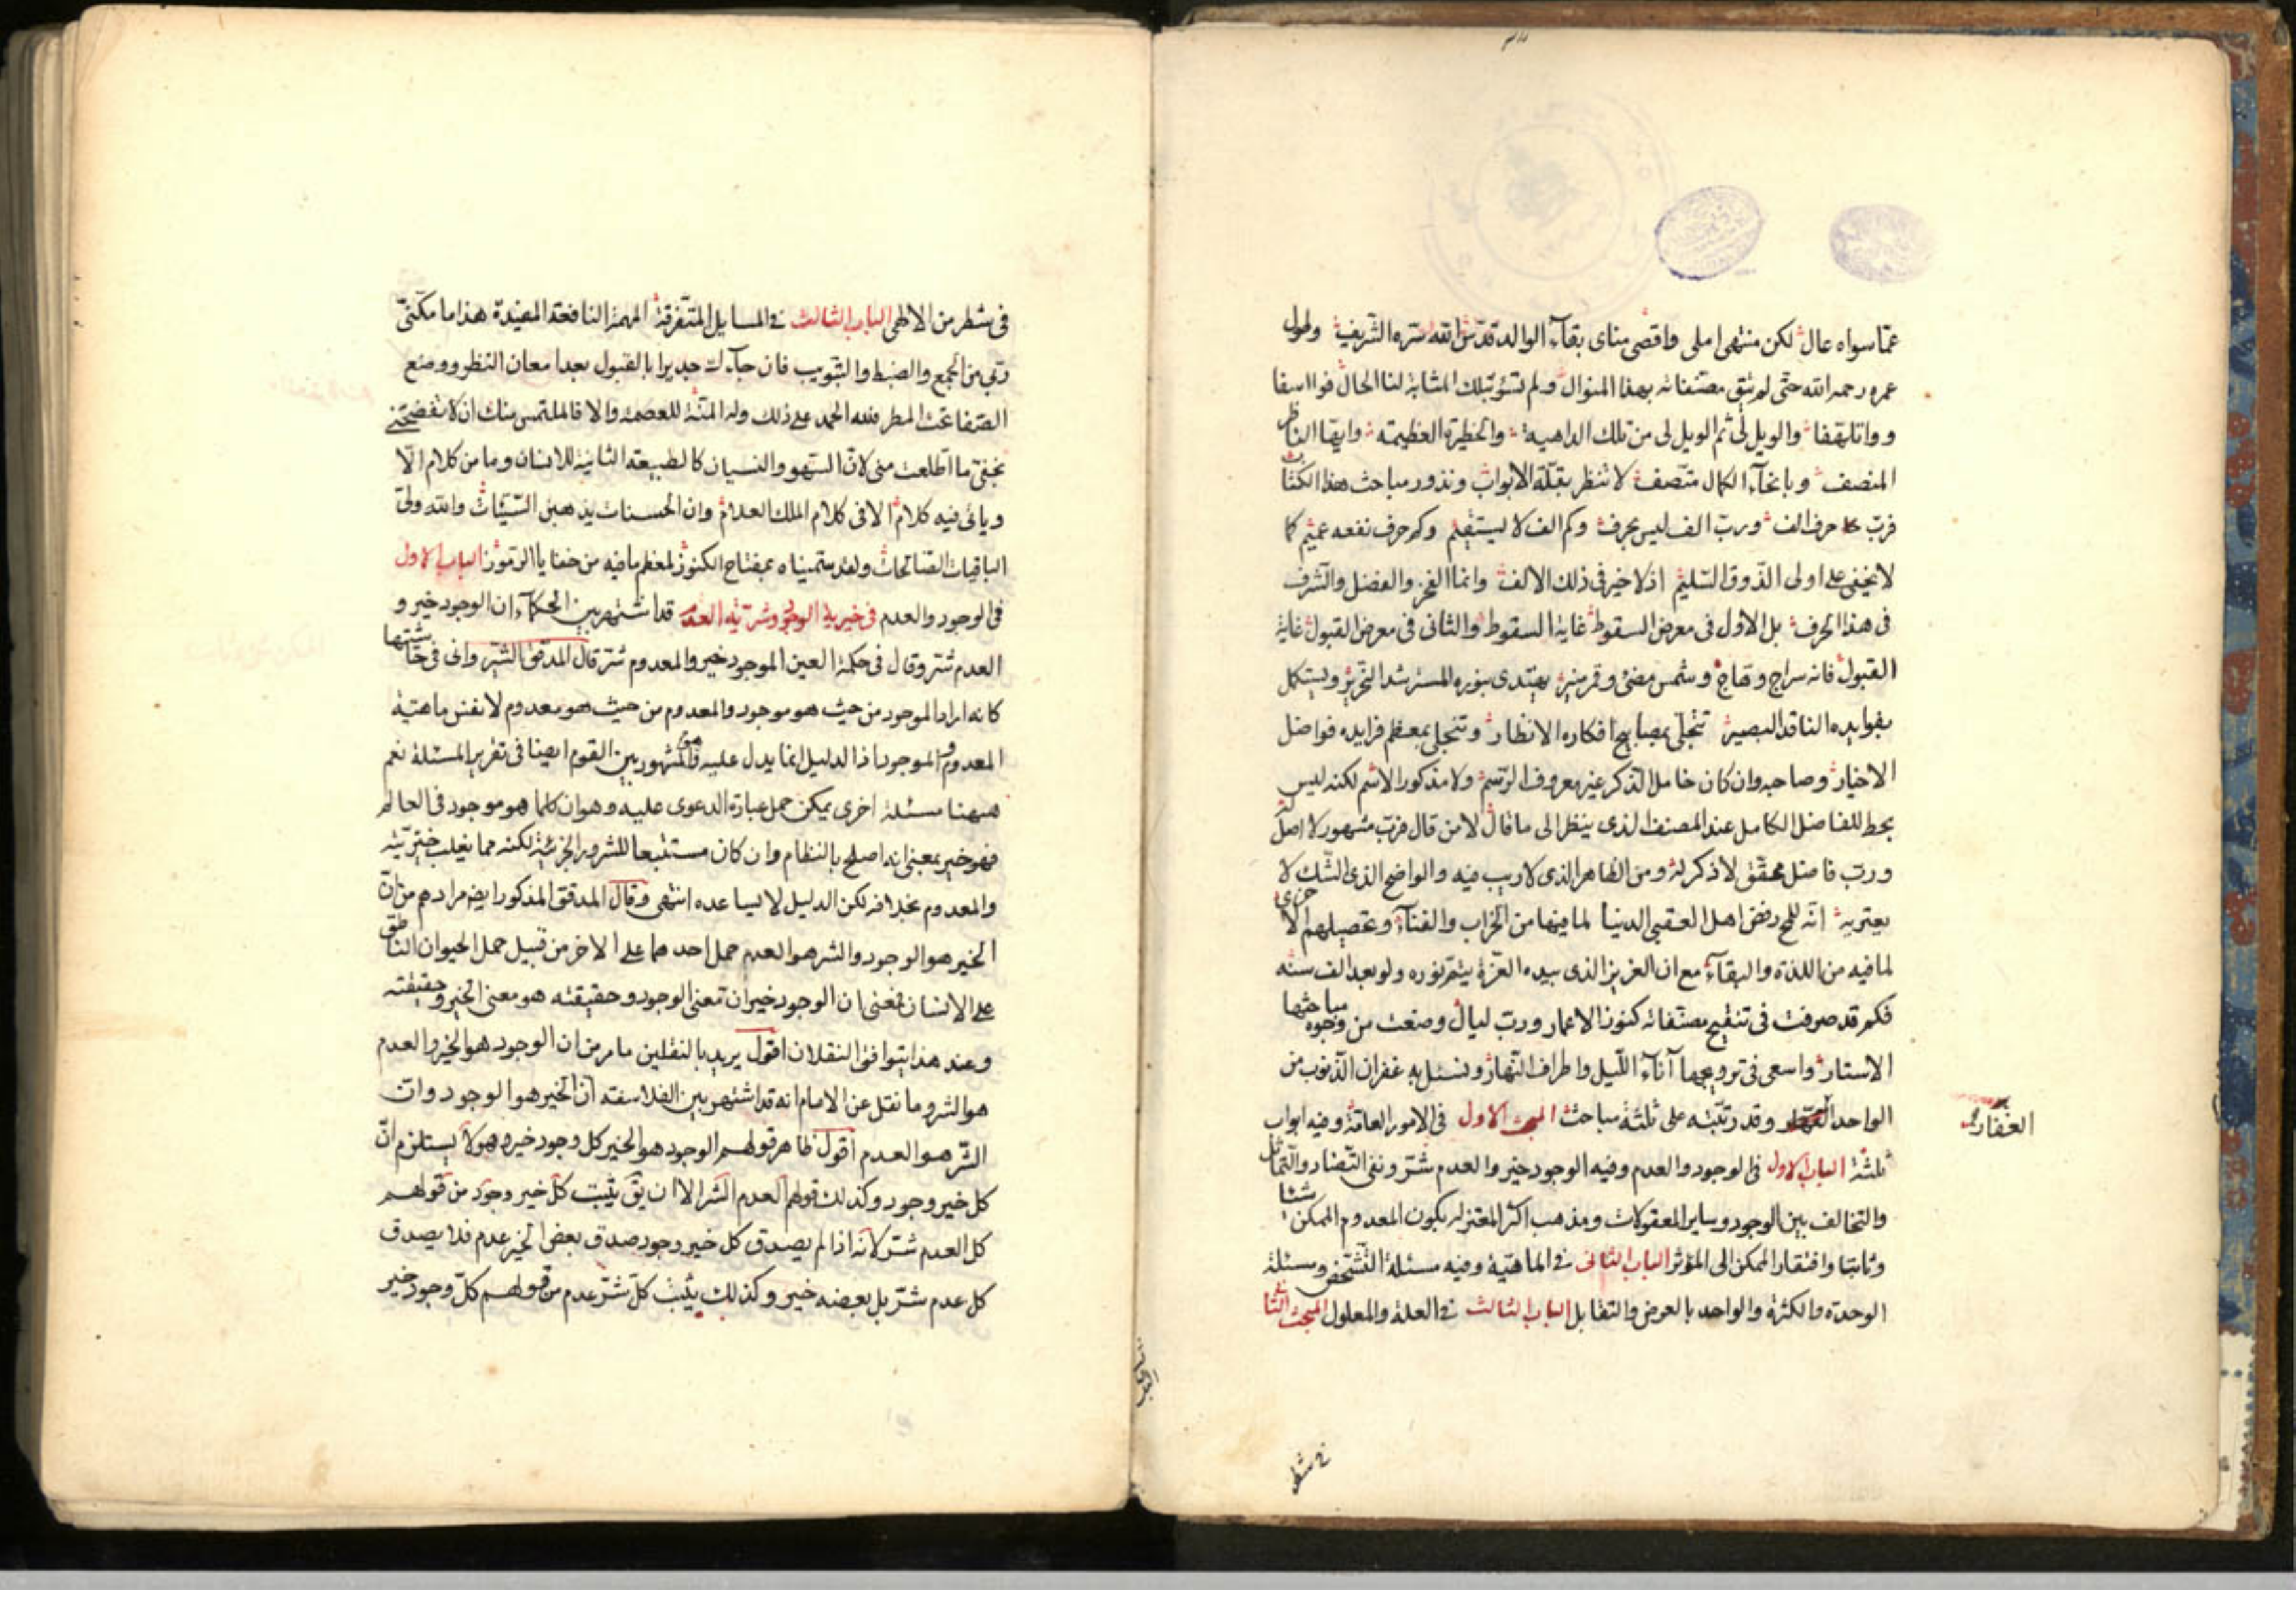 عمّا سواه عال لكن منتهى املى واقصى مناى بقاء الوالد قدّس الله سرّه الشريف ولطول
عمره رحمه الله حتّى لم تبق مصنّفاته بهذا المنوال ولم تسؤ بتلك المثابة لنا الحال فوا اسفا
و والويل لى ثم الويل لى من تلك الداهية والخطيرة العظيمة وايّها الناظر
المنصف وبانحاء الكمال متّصف لا تنظر بقلّة الابواب ونذور مباحث هذا الكتاب
فربّ حرف الف وربّ الف ليس بحرف وكم الف لا يستقيم وكم حرف نفعه عميم كما
لا يخفى على اولى الذّوق السّليم اذ لا خير فى ذلك الالف وانما الفخر والفضل والشرف
فى هذا الحرف بل الاول فى معرض السقوط غاية السقوط والثانى فى معرض القبول غاية
القبول فانه سراج وهاج وشمس مضئ وقمر منير يهتدى بنوره المسترشد النحرير ويستكمل
بفوايده الناقد البصير تتجلّى بمصابيح افكاره الانظار وتتجلى بمعظم فرايده فواضل
الاخيار وصاحبه وان كان خامل الذكر غير معروف الرسم ولا مذكور الاسم لكنه ليس
بحط للفاضل الكامل عند المصنف الذى ينظر الى ما قال لا من قال فربّ مشهور لا اصل له
وربّ فاضل محقّق لا ذكر له ومن الظاهر الذى لا ريب فيه والواضح الذى الشّك لا
يعتريه انّه رفض اهل العقبى الدنيا لما فيها من الخراب والفناء وتحصيلهم الاخرى
لما فيه من اللذة والبقاء مع ان العزيز الذى بيده العزّة يتمّ نوره ولو بعد الف سنه
فكم قد صرفت فى تنقيح مصنّفاته كنوز الاعمار وربّ ليال وضعت من وجوه مباحثها
الاستار واسعى فى ترويجها آناء اللّيل واطراف النّهار ونسئل به غفران الذّنوب من
الواحد وقد رتّبته على ثلثة مباحث المبحث الاول فى الامور العامّة وفيه ابواب
الغفار
ثلثة الباب الاول فى الوجود والعدم وفيه الوجود خير والعدم شرّ ونفى التّضاد والتّماثل
والتخالف بين الوجود وساير المعقولات ومذهب اكثر المعتزله بكون المعدوم الممكن شيئا
وثابتا وافتقار الممكن الى المؤثر الباب الثانى فى الماهيّة وفيه مسئلة التّشخّص ومسئلة
الوحدة والكثرة والواحد بالعرض والتقابل الباب الثالث فى العلة والمعلول المبحث الثانى
فى شطر
فى شطر من الالهى الباب الثالث فى المسايل المتفرقة المهمة النافعة المفيدة هذا ما مكّننى
ربّى من الجمع والضبط والتبويب فان جآء لك جديرا بالقبول بعد امعان النظر ووضع
فلله الحمد على ذلك وله المنّة للعصمة والا فالملتمس منك ان لا تفضحنى
ما اطّلعت منى لانّ السّهو والنسيان كالطبيعة الثانية للانسان وما من كلام الّا
وياتى فيه كلام الا فى كلام الملك العلام وان الحسنات يذهبن السّيّئات والله ولىّ
الباقيات الصّالحات ولقد سمّيناه بمفتاح الكنوز لمعظم ما فيه من خفايا الرّموز الباب الاول
فى الوجود والعدم فى خيرية الوجود وشرّية العدم قد اشتهر بين الحكمآء ان الوجود خير و
العدم شرّ وقال فى حكمة العين الموجود خير والمعدوم شرّ قال المدقّق الشيروانى فى حاشيتها
كانه اراد الموجود من حيث هو موجود والمعدوم من حيث هو معدوم لا نفس ماهيّة
المعدوم والموجود اذ الدليل انما يدل عليه وهو المشهور بين القوم ايضا فى تقرير المسئلة نعم
ههنا مسئلة اخرى يمكن حمل عبارة الدعوى عليه وهو ان كلما هو موجود فى العالم
فهو خير بمعنى انه اصلح بالنظام وان كان مستتبعا للشرور الجزئية لكنه مما يغلب خيريّته
والمعدوم بخلافه لكن الدليل لا يساعده انتهى وقال المدقق المذكور ايض مرادهم من انّ
الخير هو الوجود والشر هو العدم حمل احدهما على الاخر من قبيل حمل الحيوان الناطق
على الانسان فمعنى ان الوجود خير ان معنى الوجود وحقيقته هو معنى الخير وحقيقته
وعند هذا يتوافق النقلان اقول يريد بالنقلين ما مر من ان الوجود هو الخير والعدم
هو الشر وما نقل عن الامام انه قد اشتهر بين الفلاسفة ان الخير هو الوجود وانّ
الشّر هو العدم اقول ظاهر قولهم الوجود هو الخير كل وجود خير وهو لا يستلزم انّ
كل خير وجود وكذلك قولهم العدم الشر الا ان يق يثبت كلّ خير وجود من قولهم
كل العدم شرّ لانه اذا لم يصدق كل خير وجود صدق بعض الخير عدم فلا يصدق
كل عدم شرّ بل بعضه خير وكذلك يثبت كلّ شرّ عدم من قولهم كلّ وجود خير